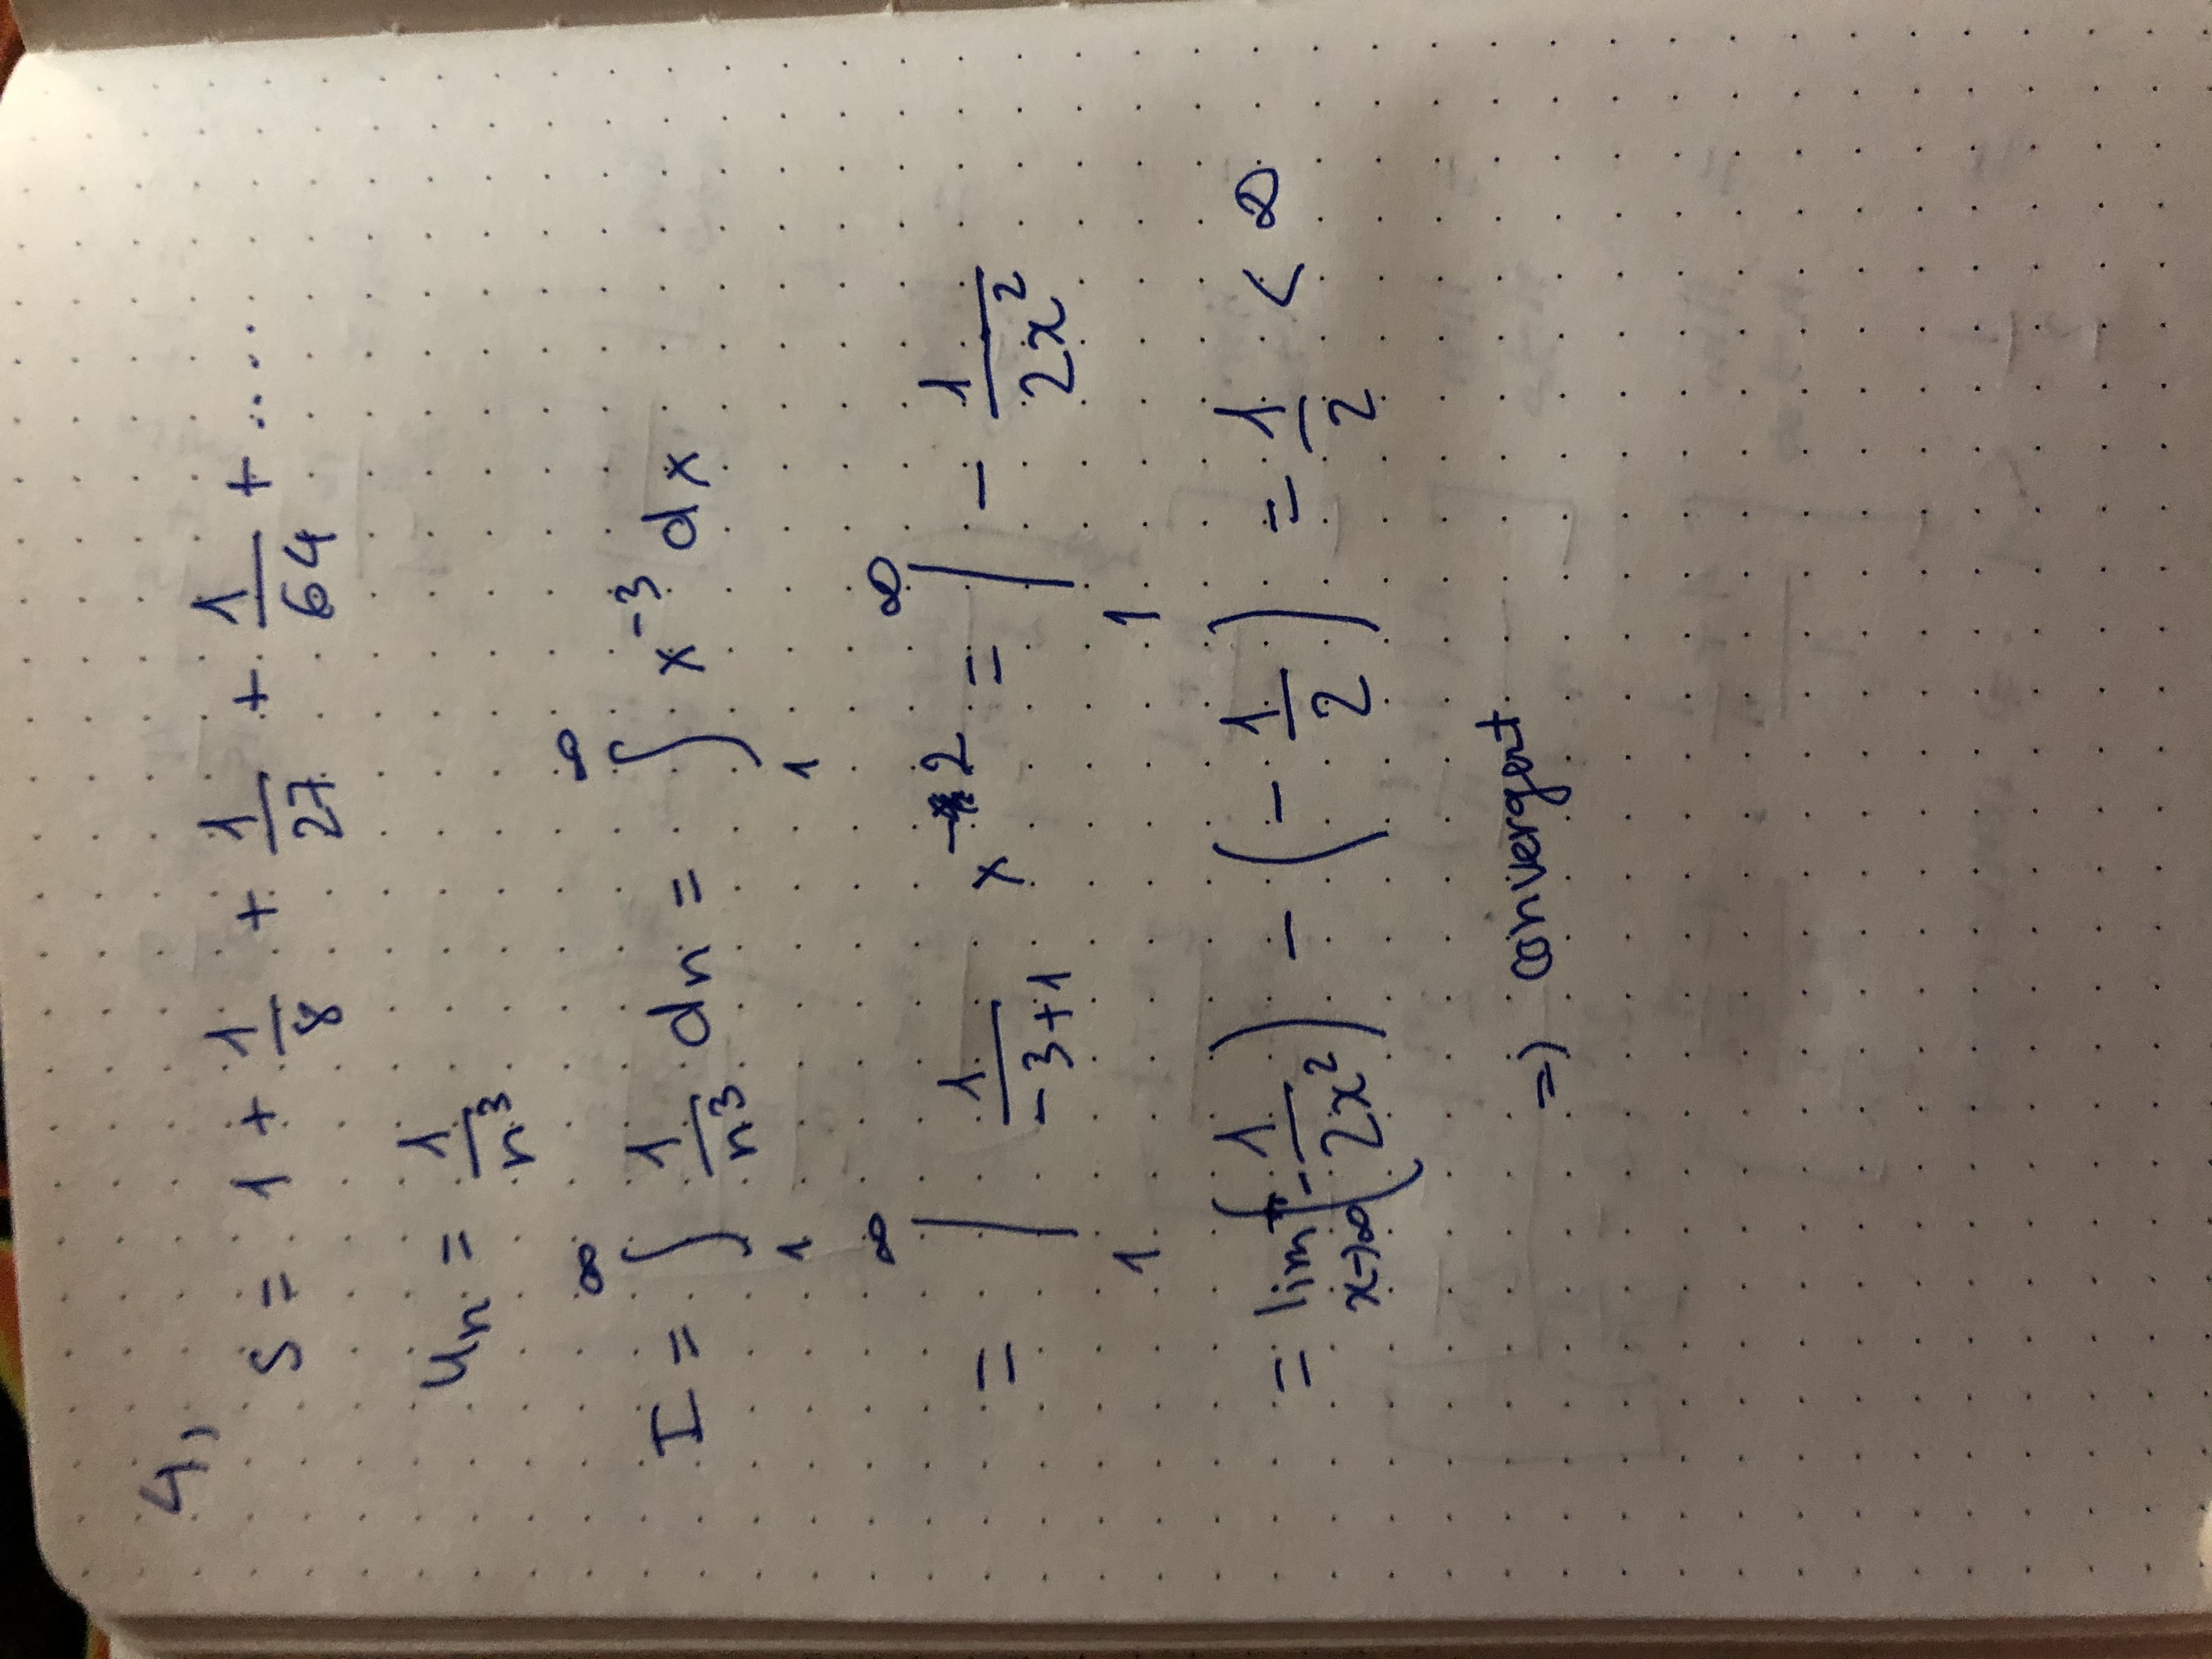 4,
S = 1 + 1/8 + 1/27 + 1/64 + .....
uₙ = 1/n³
I = ∫₁^∞ 1/n³ dn = ∫₁^∞ x⁻³ dx
= |₁^∞ 1/(-3+1) x⁻² = |₁^∞ - 1/(2x²)
= lim x→∞ (- 1/(2x²)) - (- 1/2) = 1/2 < ∞
=> convergent